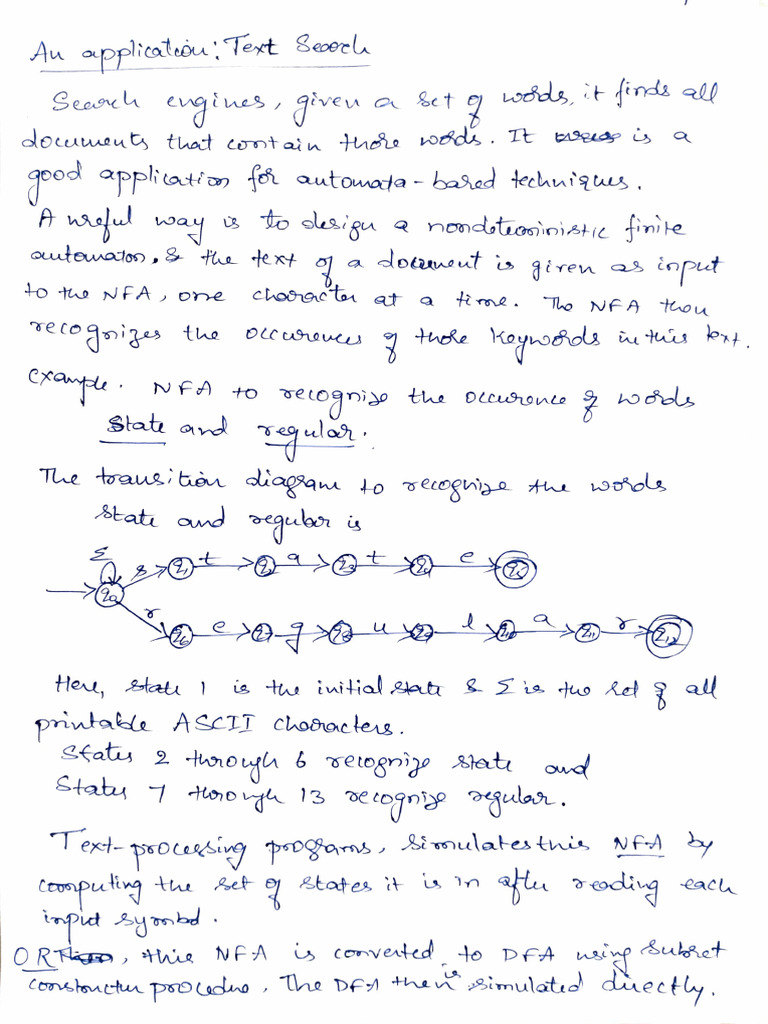 An application: Text Search
Search engines, given a set of words, it finds all
documents that contain those words. It is a
good application for automata-based techniques.
A useful way is to design a nondeterministic finite
automaton, & the text of a document is given as input
to the NFA, one character at a time. The NFA then
recognizes the occurences of those keywords in this text.
example. NFA to recognise the occurence of words
state and regular.
The transition diagram to recognize the words
state and regular is
Σ
s t a t e
q0 q1 q2 q3 q4 q5
r e g u l a r
q6 q7 q8 q9 q10 q11 q12
Here, state 1 is the initial state & Σ is the set of all
printable ASCII characters.
States 2 through 6 recognize state and
States 7 through 13 recognize regular.
Text-processing programs, simulates this NFA by
computing the set of states it is in after reading each
input symbol.
OR, this NFA is converted to DFA using subset
constructun procedure, The DFA then is simulated directly.